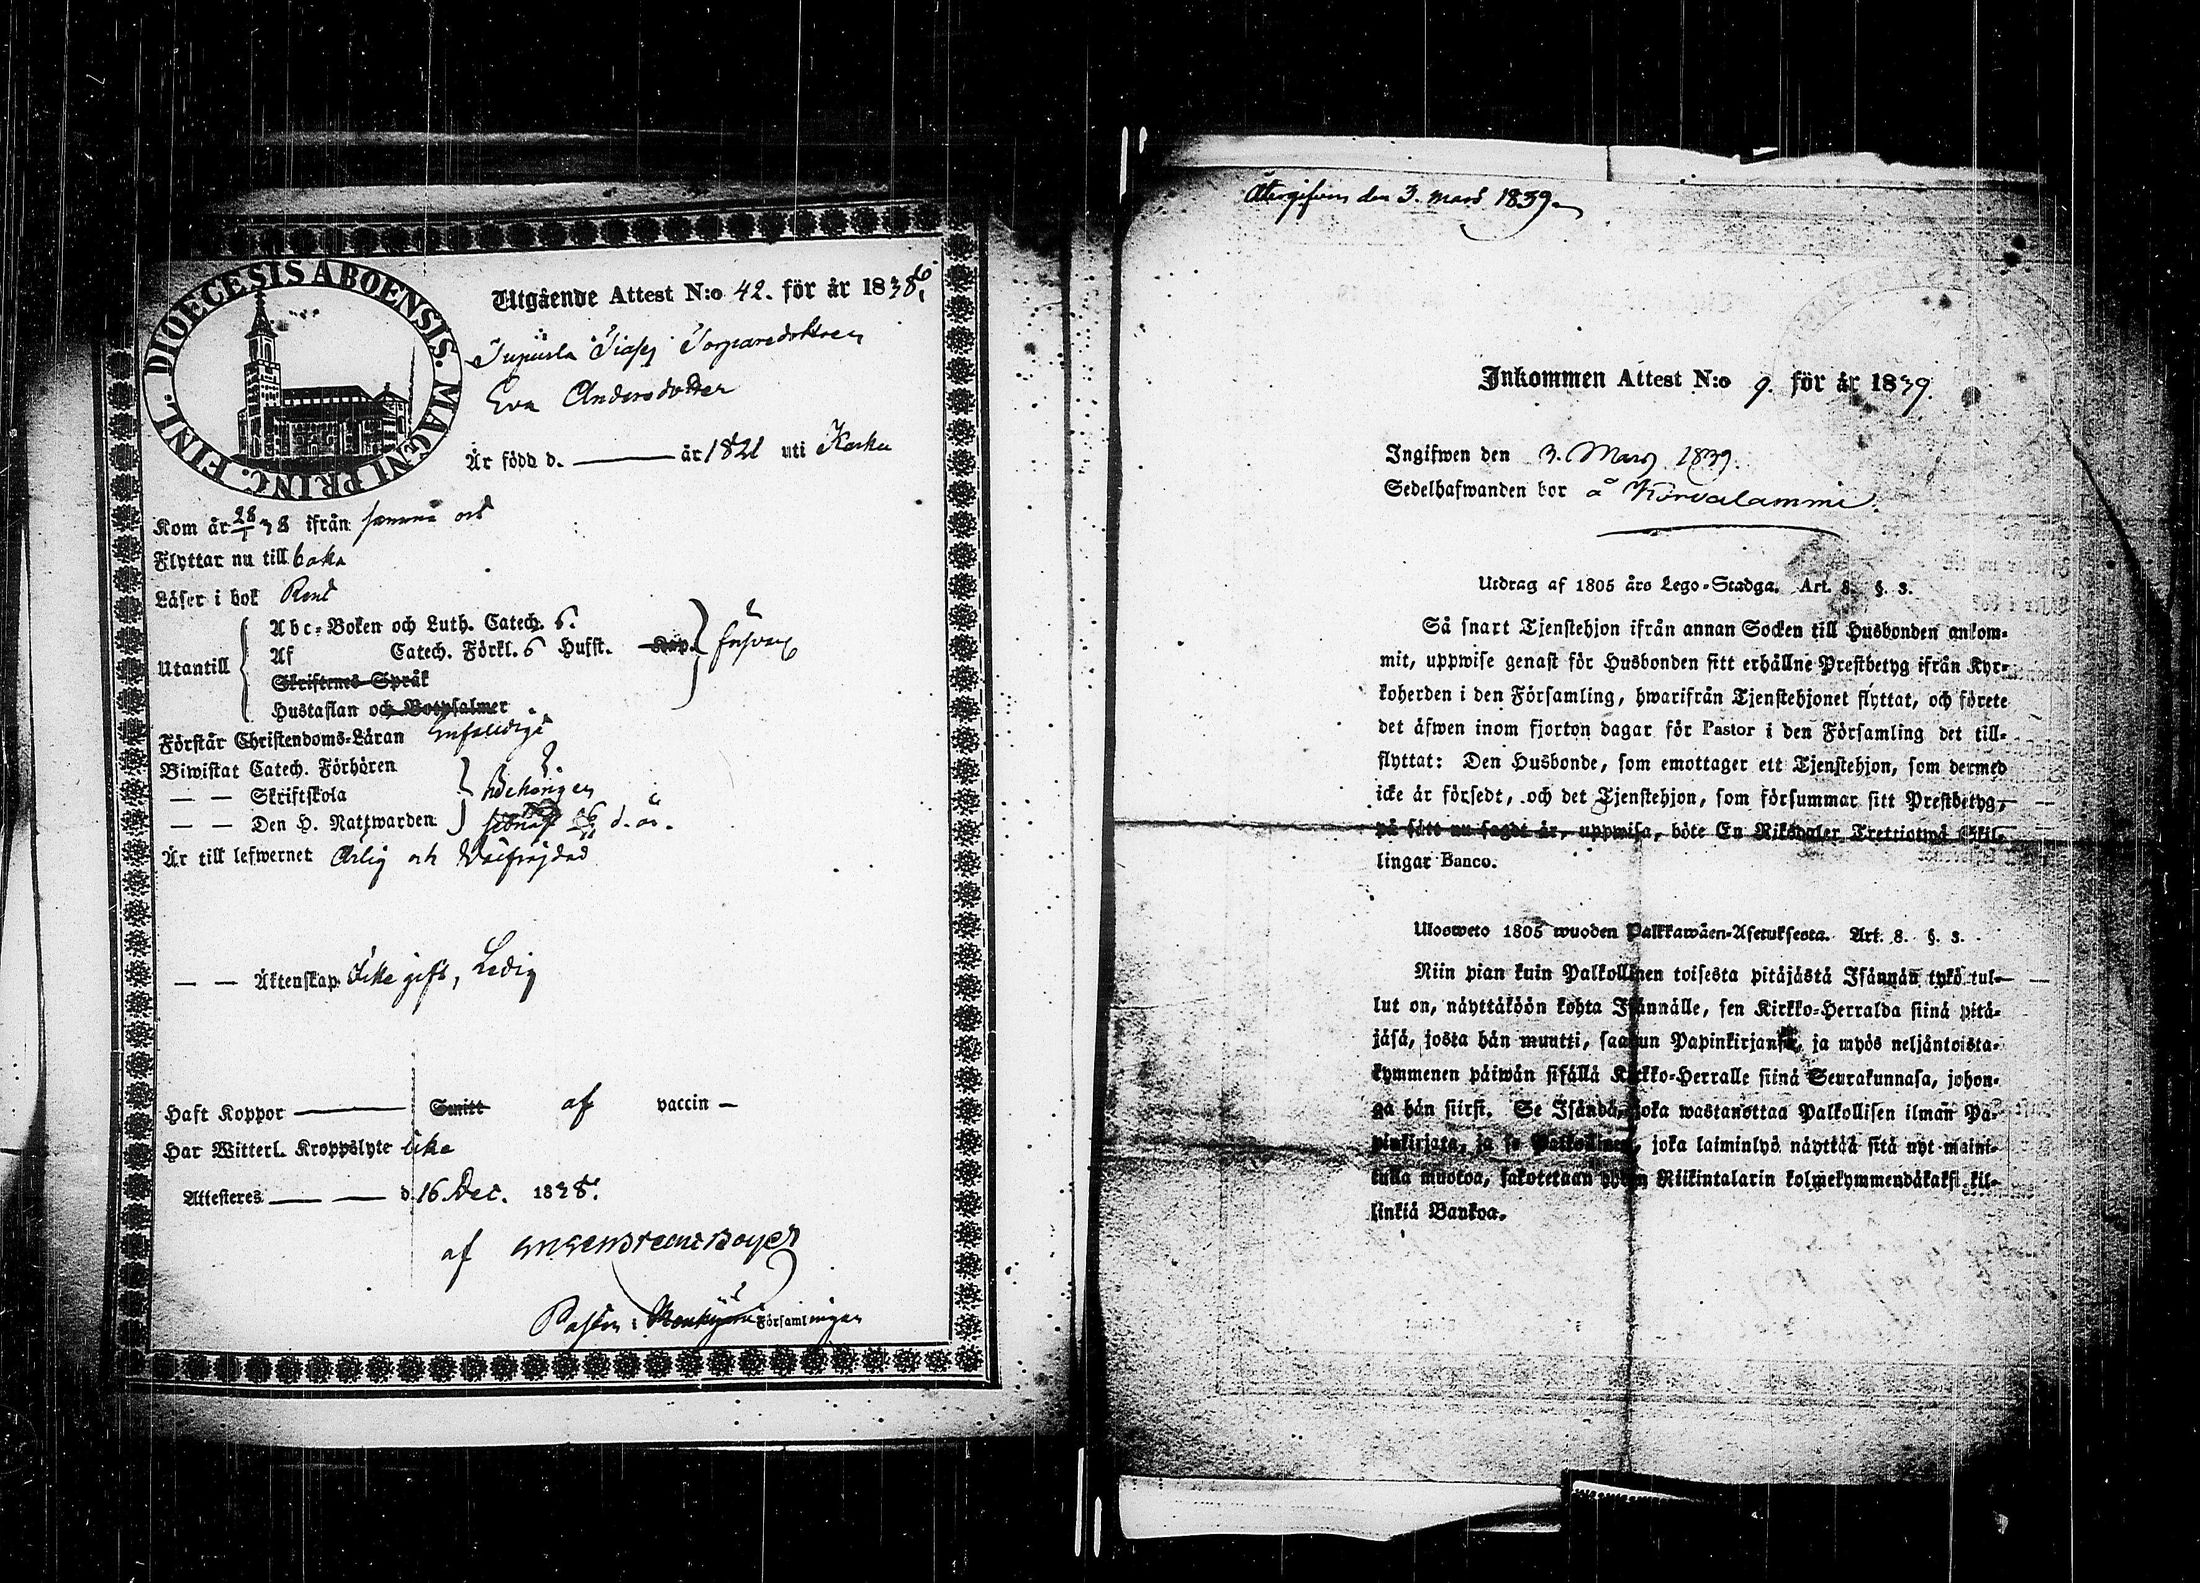 DIOECESIS ABOENSIS. MAGNI PRINC. FINL.
Utgående Attest N:o 42. för år 1838.
Torparedottren
Eva Andersdotter
Är född d. — år 1821 uti Karku
Kom år 28/1 38 ifrån samma ort
Flyttar nu till baka
Läser i bok Rent
Utantill
Abc-Boken och Luth. Catech. 6.
Af Catech. Förkl. 6 Husst. Kap.
Skriftenes Språk
Hustaflan och Botpsalmer
Förstår Christendoms-Läran Enfaldigt
Biwistat Catech. Förhören
— — Skriftskola behörigen
— — Den H. Nattwarden d. år.
Är till lefwernet Ärlig och Wälfrejdad
— — Äktenskap Icke gift, Ledig
Haft Koppor — Smitt af vaccin —
Har Witterl. Kroppslyte icke
Attesteres — — d. 16 Dec. 1838.
af
Pastor i Församlingen
Återgifven den 3. Mars 1839.
Inkommen Attest N:o 9. för år 1839.
Ingifwen den 3. Mars 1839.
Sedelhafwanden bor å Körvalammi.
Utdrag af 1805 års Lego-Stadga. Art. 8. §. 3.
Så snart Tjenstehjon ifrån annan Socken till Husbonden ankom-
mit, uppwise genast för Husbonden sitt erhållne Prestbetyg ifrån Kyr-
koherden i den Församling, hwarifrån Tjenstehjonet flyttat, och förete
det äfwen inom fjorton dagar för Pastor i den Församling det till-
flyttat: Den Husbonde, som emottager ett Tjenstehjon, som dermed
icke är försedt, och det Tjenstehjon, som försummar sitt Prestbetyg,
på sätt nu sagdt är, uppwisa, böte En Riksdaler Trettiotwå Skil-
lingar Banco.
Ulosweto 1805 wuoden Palkkawäen-Asetuksesta. Art. 8. §. 3.
Niin pian kuin Palkollinen toisesta pitäjästä Isännän tykö tul-
lut on, näyttäköön kohta Isännälle, sen Kirkko-Herralda siinä pitä-
jäsä, josta hän muutti, saadun Papinkirjansa, ja myös neljäntoista-
kymmenen päiwän sisällä Kirkko-Herralle siinä Seurakunnasa, johon-
ga hän siirsi. Se Isändä, joka wastanottaa Palkollisen ilman Pa-
pinkirjata, ja se Palkollinen, joka laiminlyö näyttää sitä nyt maini-
tulla muotoa, sakotetaan yhden Riikintalarin kolmekymmendäkaksi kil-
linkiä Bankoa.